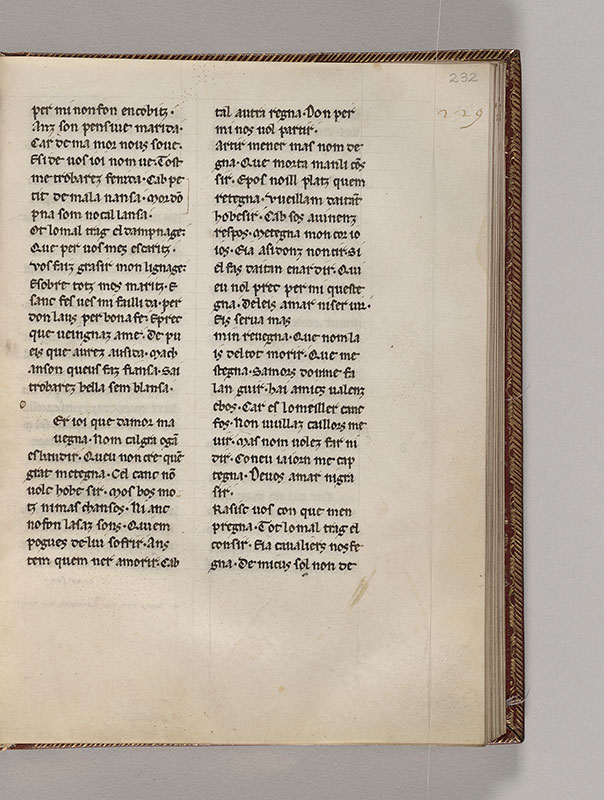 232
229
per mi non son encobitz·
Anz son pensiue marida·
Car de ma mor nous soue·
Esi de uos ioi nom ue·Tost
me trobarez fenida·Cab pe
tit de mala nansa·mor dō
pna som nocal lansa·
Ot lo mal trag el dampnage:
Que per uos mes escaritz·
vos faiz grasir mon lignage:
Esobre totz mos maritz·E
sanc fes ues mi failli da·per
don laus per bona fe·Eprec
que ueingnaz a me·De pu
eis que aurez ausida·mach
anson queus faz fiansa·Sai
trobarez bella sem blansa·
Er ioi que damor ma
uegna·Nom calgra ogā
esbaudir·Queu non cre quē
grat metegna·Cel canc nō
uolc hobe sir·mos bos mo
tz ni mas chansos·Ni anc
no fon lasaz sons·Quiem
pogues de lui sofrir·Ans
tem quem ner a morir·Cab
tal autra regna·Don per
mi nos uol partir·
Artir mener mas nom de
gna·Que morta manli cōs
sir·Epos noill platz quem
retegna·Vueillam daitāt
hobesir·Cab sos auinenz
respos·Metegna mon cor io
ios·Eia asi donz non tir·Si
el faz daitan enardir·Qui
eu nol prec per mi queste
gna·Deleis amar ni ser uir·
Eis serua mas
min reuegna·Que nom la
is del tot morir·Que me
stegna·Samors don me fa
lan guir·hai amics ualenz
ebos·Car es lo meiller canc
fos·Non uuillaz caillors me
uir·mas nom uolez far ni
dir·Con eu ia iorn me cap
tegna·Deuos amar nigra
sir·
Rasisc uos con que men
pregna·Tot lo mal trag el
consir·Eia caualiers nos fe
gna·De mi cus sol non de